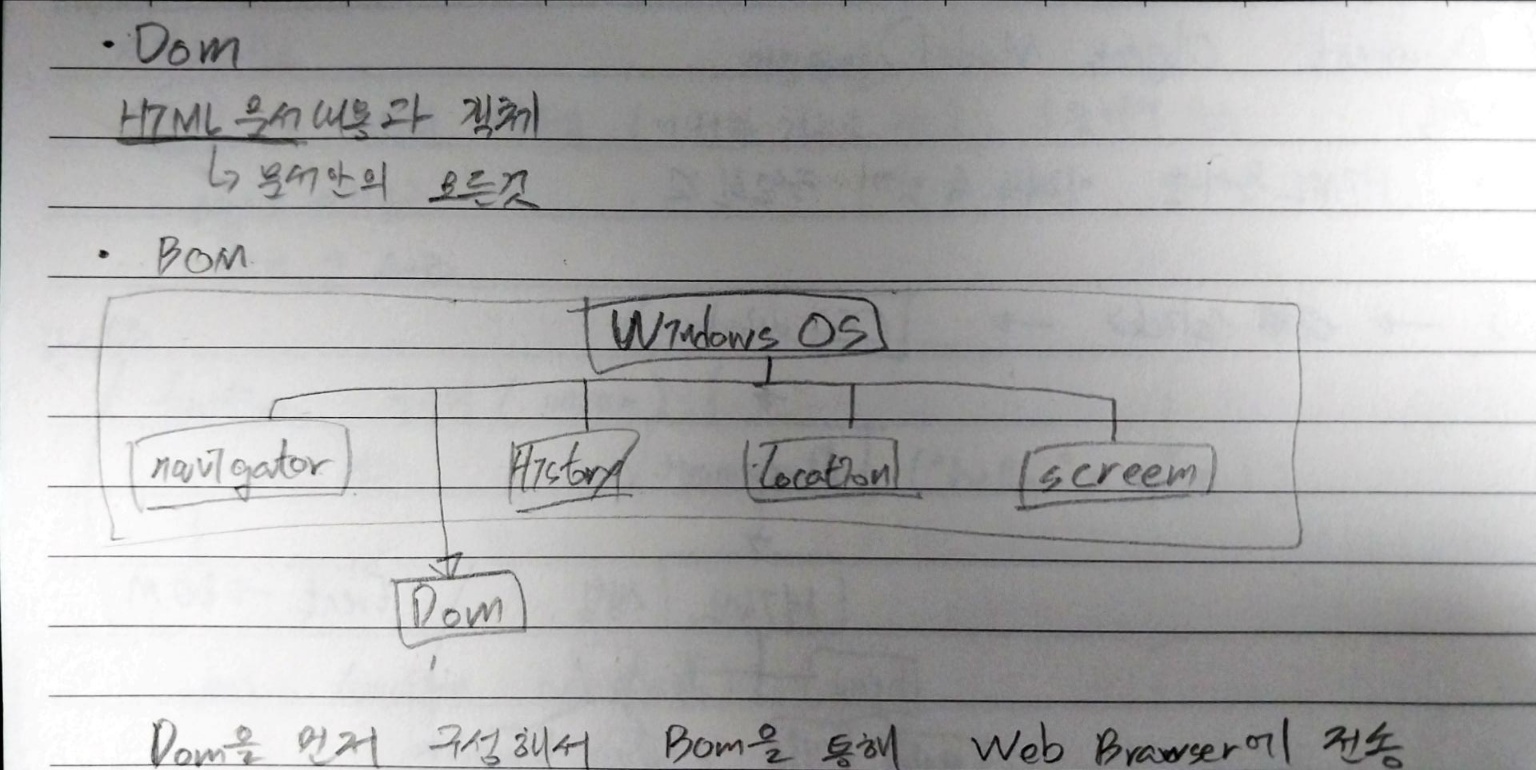 • Dom
HTML 문서 내용과 객체
↳ 문서안의 모든것
• BOM
Windows OS
navigator History location screem
Dom
Dom을 먼저 구성해서 Bom을 통해 Web Browser에 전송